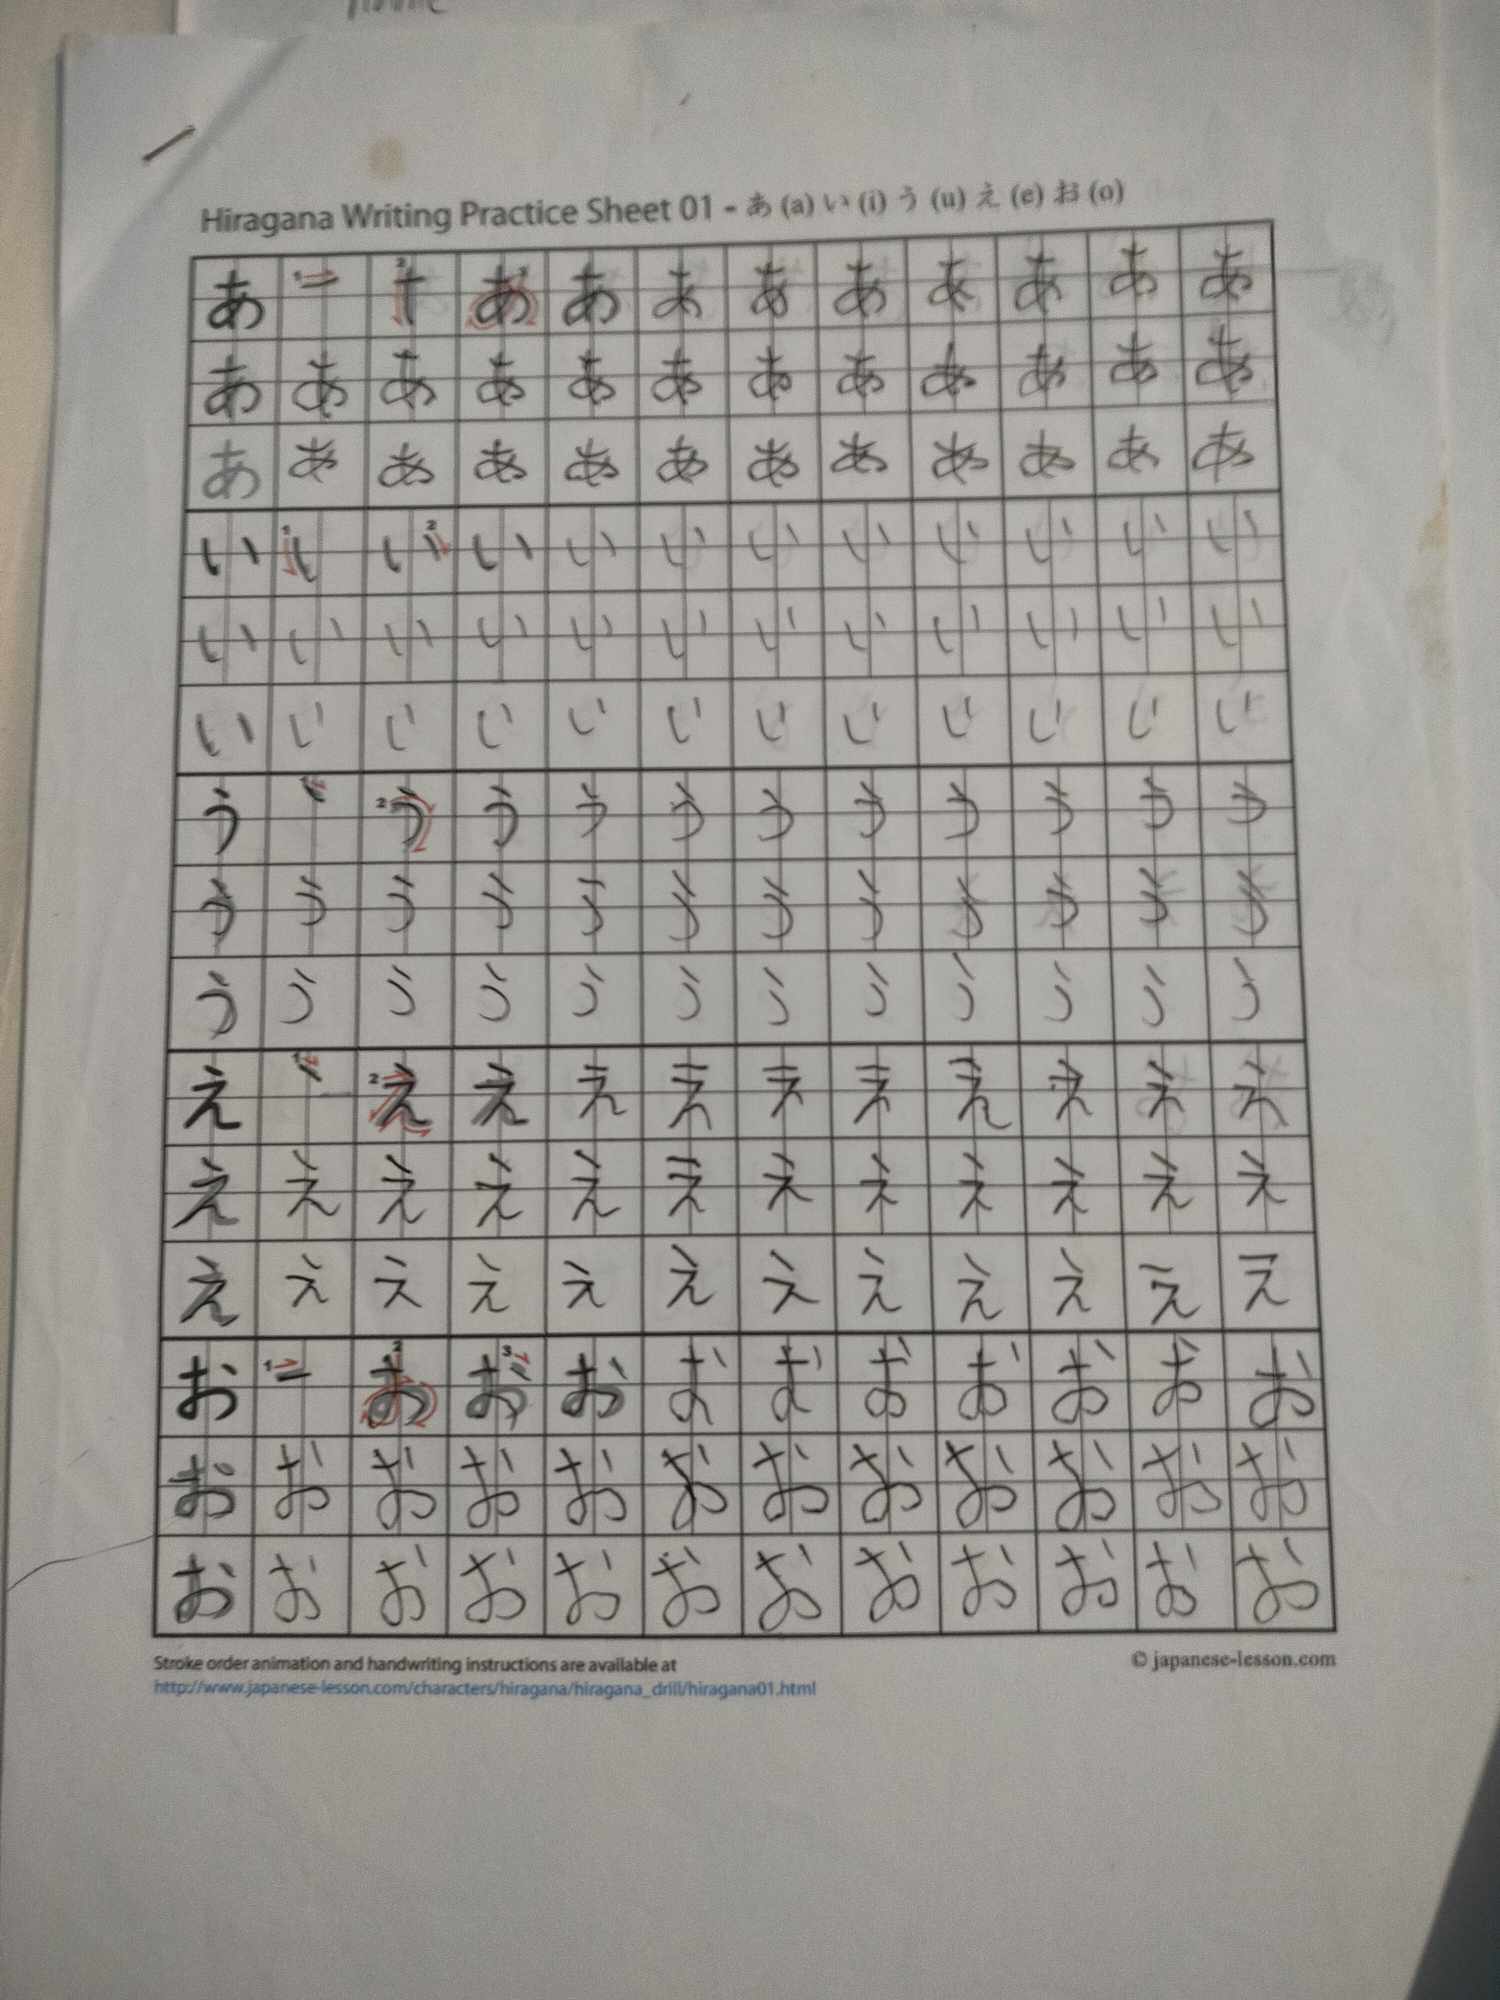 Hiragana Writing Practice Sheet 01 - あ (a) い (i) う (u) え (e) お (o)
あ 1 2 あ 3 あ あ あ あ あ あ あ あ
あ あ あ あ あ あ あ あ あ あ あ あ
あ あ あ あ あ あ あ あ あ あ あ あ
い 1 い 2 い い い い い い い い い
い い い い い い い い い い い い
い い い い い い い い い い い い
う 1 2 う う う う う う う う う う
う う う う う う う う う う う う
う う う う う う う う う う う う
え 1 2 え え え え え え え え え え
え え え え え え え え え え え え
え え え え え え え え え え え え
お 1 2 お 3 お お お お お お お お
お お お お お お お お お お お お
お お お お お お お お お お お お
Stroke order animation and handwriting instructions are available at
© japanese-lesson.com
http://www.japanese-lesson.com/characters/hiragana/hiragana_drill/hiragana01.html